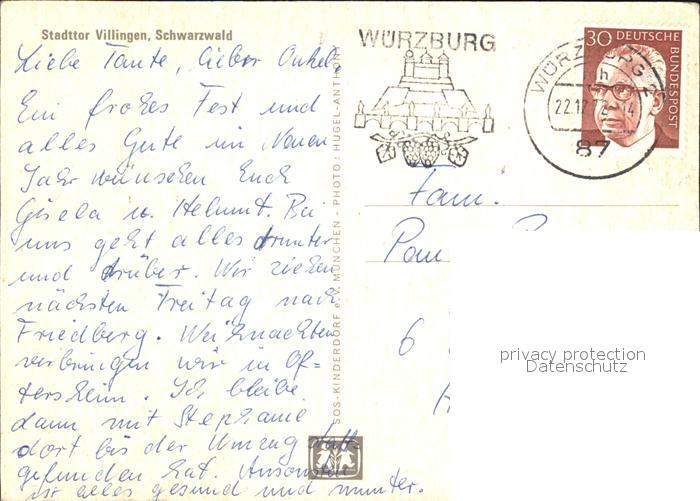 Stadttor Villingen, Schwarzwald
Liebe Tante, lieber Onkel
Ein frohes Fest und
alles Gute im Neuen
Jahr wünschen Euch
Gisela u. Helmut. Bei
uns geht alles drunter
und drüber. Wir ziehen
nächsten Freitag nach
Friedberg. Weihnachten
verbringen wir in Of-
tersheim. Ich bleibe
dann mit Stephanie
dort bis der Umzug statt-
gefunden hat. Ansonsten
ist alles gesund und munter.
SOS-KINDERDORF e.V. MÜNCHEN - PHOTO: HUGEL-ANTHONY
WÜRZBURG
30 DEUTSCHE
BUNDESPOST
WÜRZBURG 2
h
22.12.
14
87
Fam.
6
privacy protection
Datenschutz